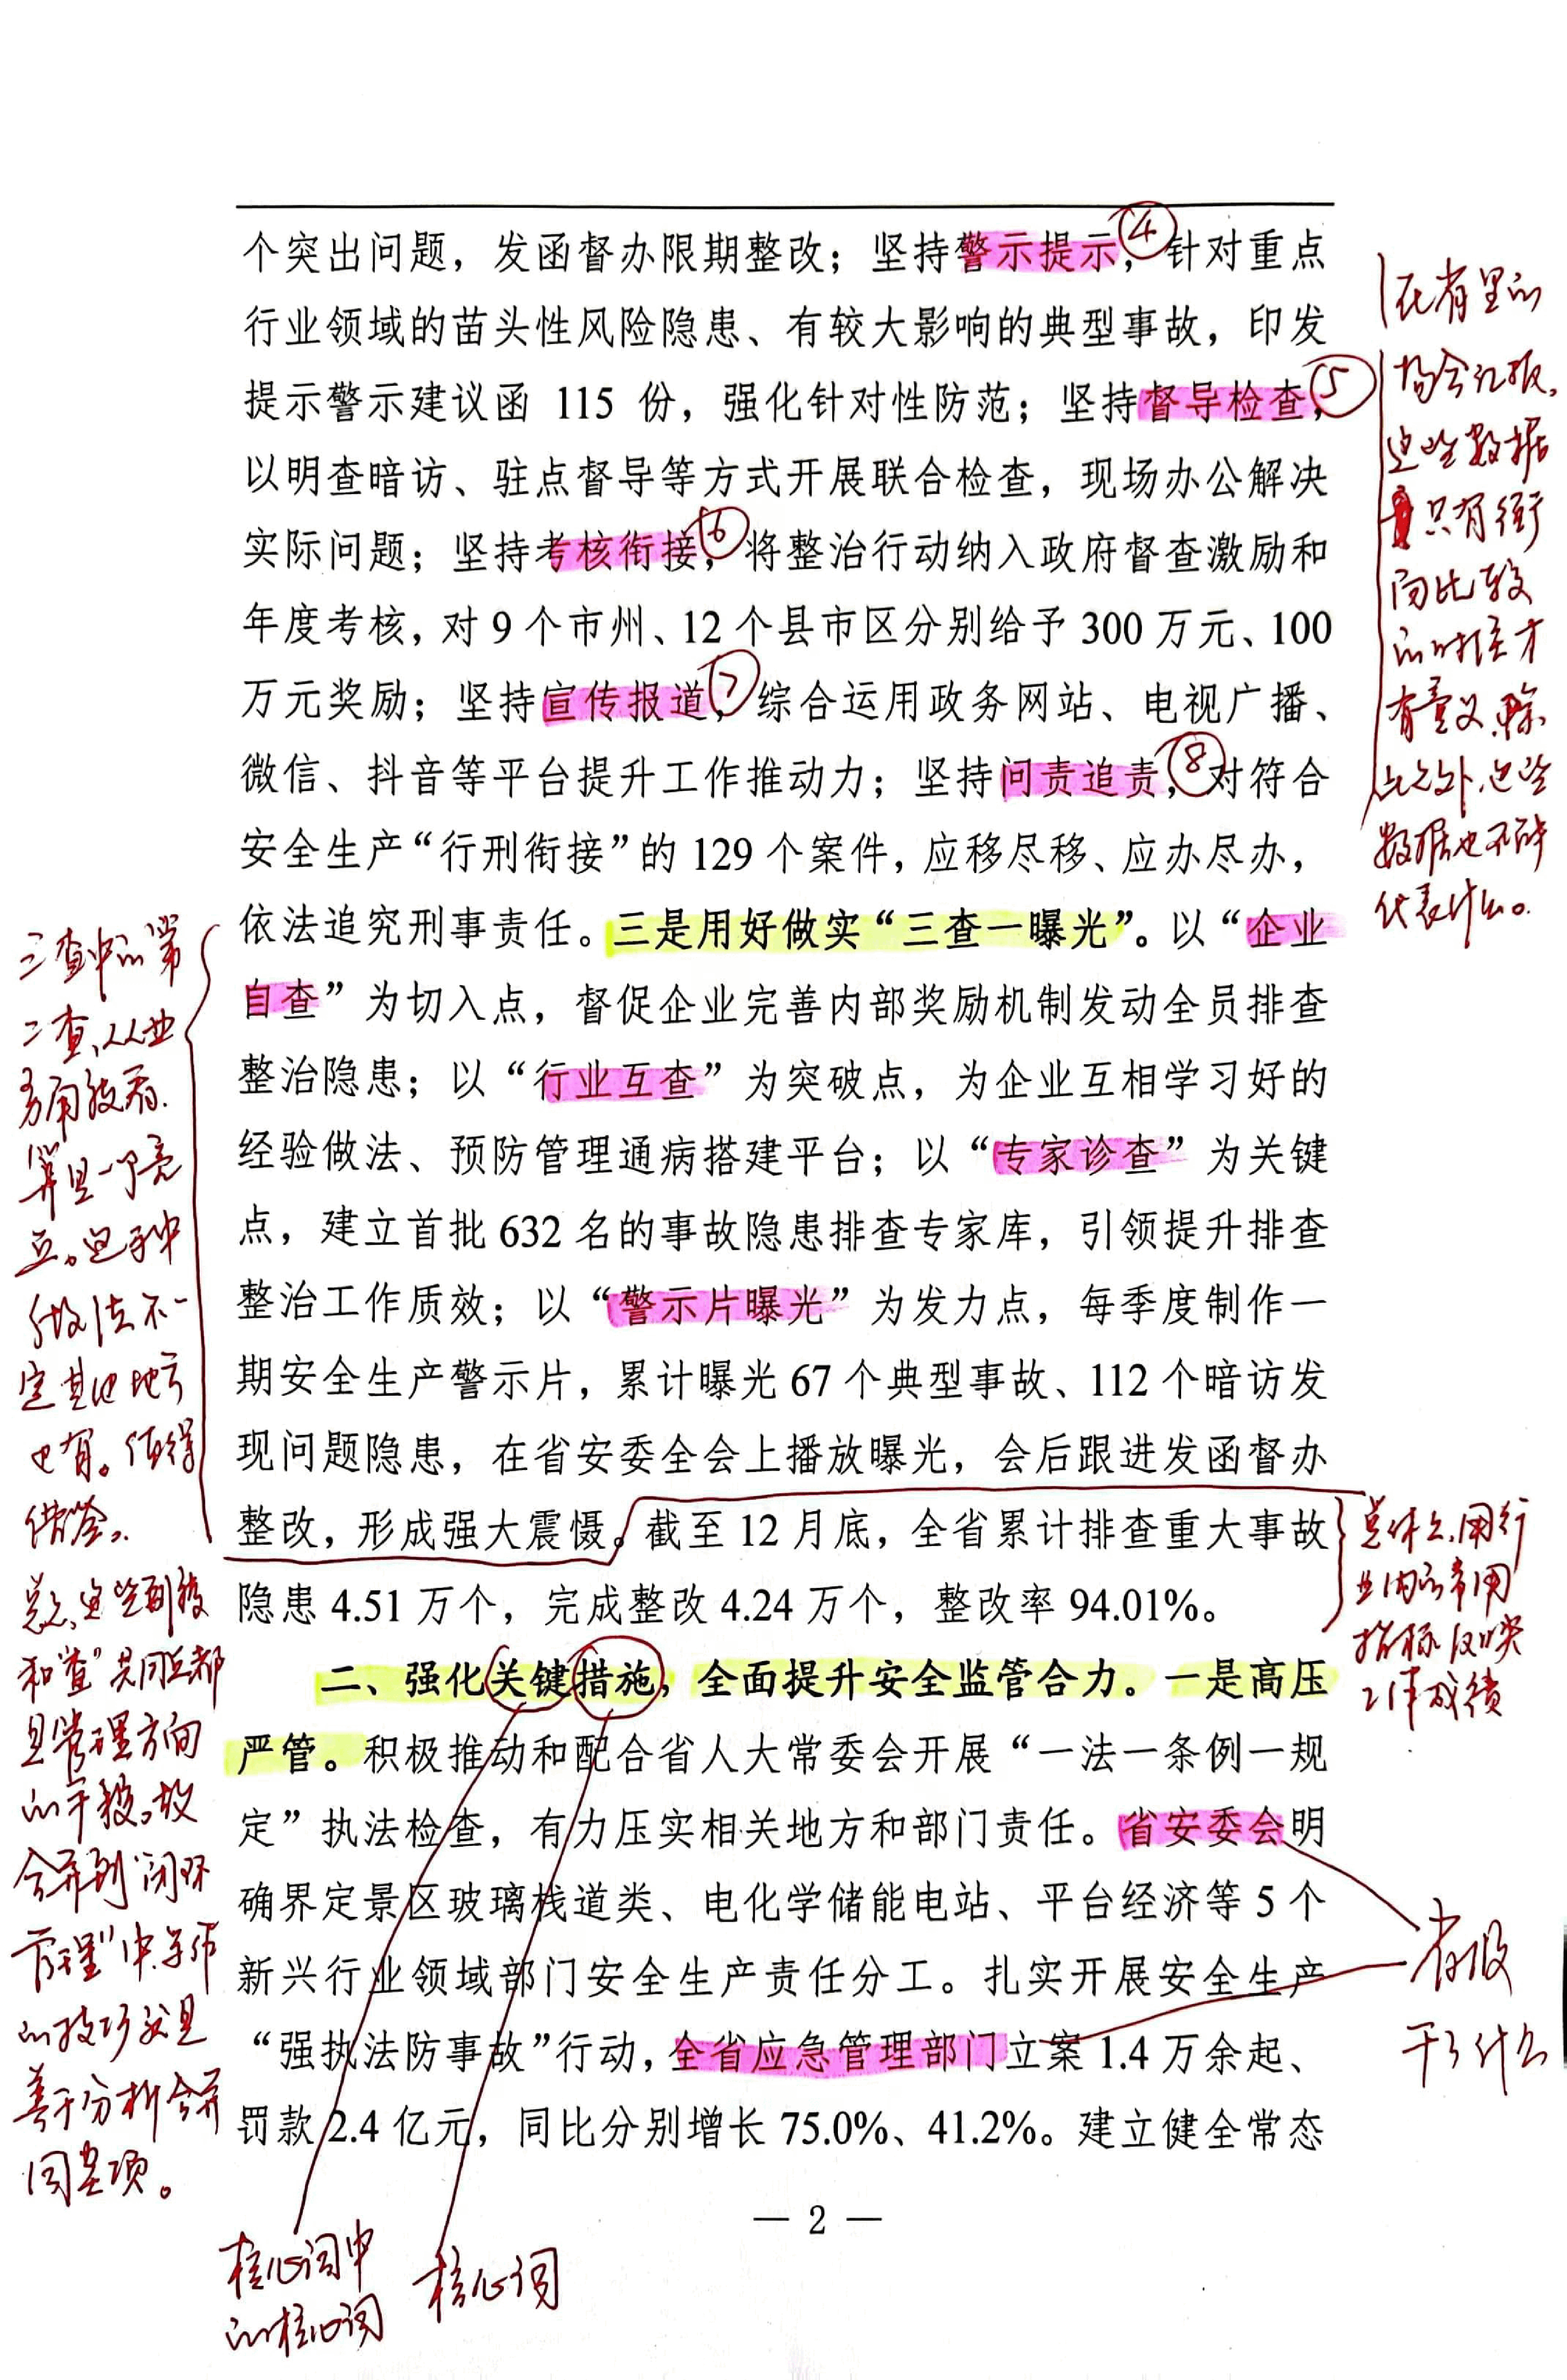 个突出问题，发函督办限期整改；坚持警示提示，④针对重点
行业领域的苗头性风险隐患、有较大影响的典型事故，印发
提示警示建议函 115 份，强化针对性防范；坚持督导检查，⑤
以明查暗访、驻点督导等方式开展联合检查，现场办公解决
实际问题；坚持考核衔接，⑥将整治行动纳入政府督查激励和
年度考核，对 9 个市州、12 个县市区分别给予 300 万元、100
万元奖励；坚持宣传报道，⑦综合运用政务网站、电视广播、
微信、抖音等平台提升工作推动力；坚持问责追责，⑧对符合
安全生产“行刑衔接”的 129 个案件，应移尽移、应办尽办，
依法追究刑事责任。三是用好做实“三查一曝光”。以“企业
自查”为切入点，督促企业完善内部奖励机制发动全员排查
整治隐患；以“行业互查”为突破点，为企业互相学习好的
经验做法、预防管理通病搭建平台；以“专家诊查”为关键
点，建立首批 632 名的事故隐患排查专家库，引领提升排查
整治工作质效；以“警示片曝光”为发力点，每季度制作一
期安全生产警示片，累计曝光 67 个典型事故、112 个暗访发
现问题隐患，在省安委全会上播放曝光，会后跟进发函督办
整改，形成强大震慑。截至 12 月底，全省累计排查重大事故
隐患 4.51 万个，完成整改 4.24 万个，整改率 94.01%。
二、强化关键措施，全面提升安全监管合力。一是高压
严管。积极推动和配合省人大常委会开展“一法一条例一规
定”执法检查，有力压实相关地方和部门责任。省安委会明
确界定景区玻璃栈道类、电化学储能电站、平台经济等 5 个
新兴行业领域部门安全生产责任分工。扎实开展安全生产
“强执法防事故”行动，全省应急管理部门立案 1.4 万余起、
罚款 2.4 亿元，同比分别增长 75.0%、41.2%。建立健全常态
— 2 —
在省里的
场合汇报，
这些数据
只有衡
向比较
的时候才
有意义，除
此之外，这些
数据也不能
代表什么。
三查中的第
二查，从业
务角度看，
算是一个亮
点。这种
做法不一
定其他地方
也有。值得
借鉴。
总之，这些制度
和“查”共同点都
是管理方向
的手段，故
合并到“闭环
管理”中，写作
的技巧就是
善于分析合并
同类项。
总体上，用行
业内的常用
指标反映
工作成绩
省级
干了什么
核心词中
的核心词
核心词